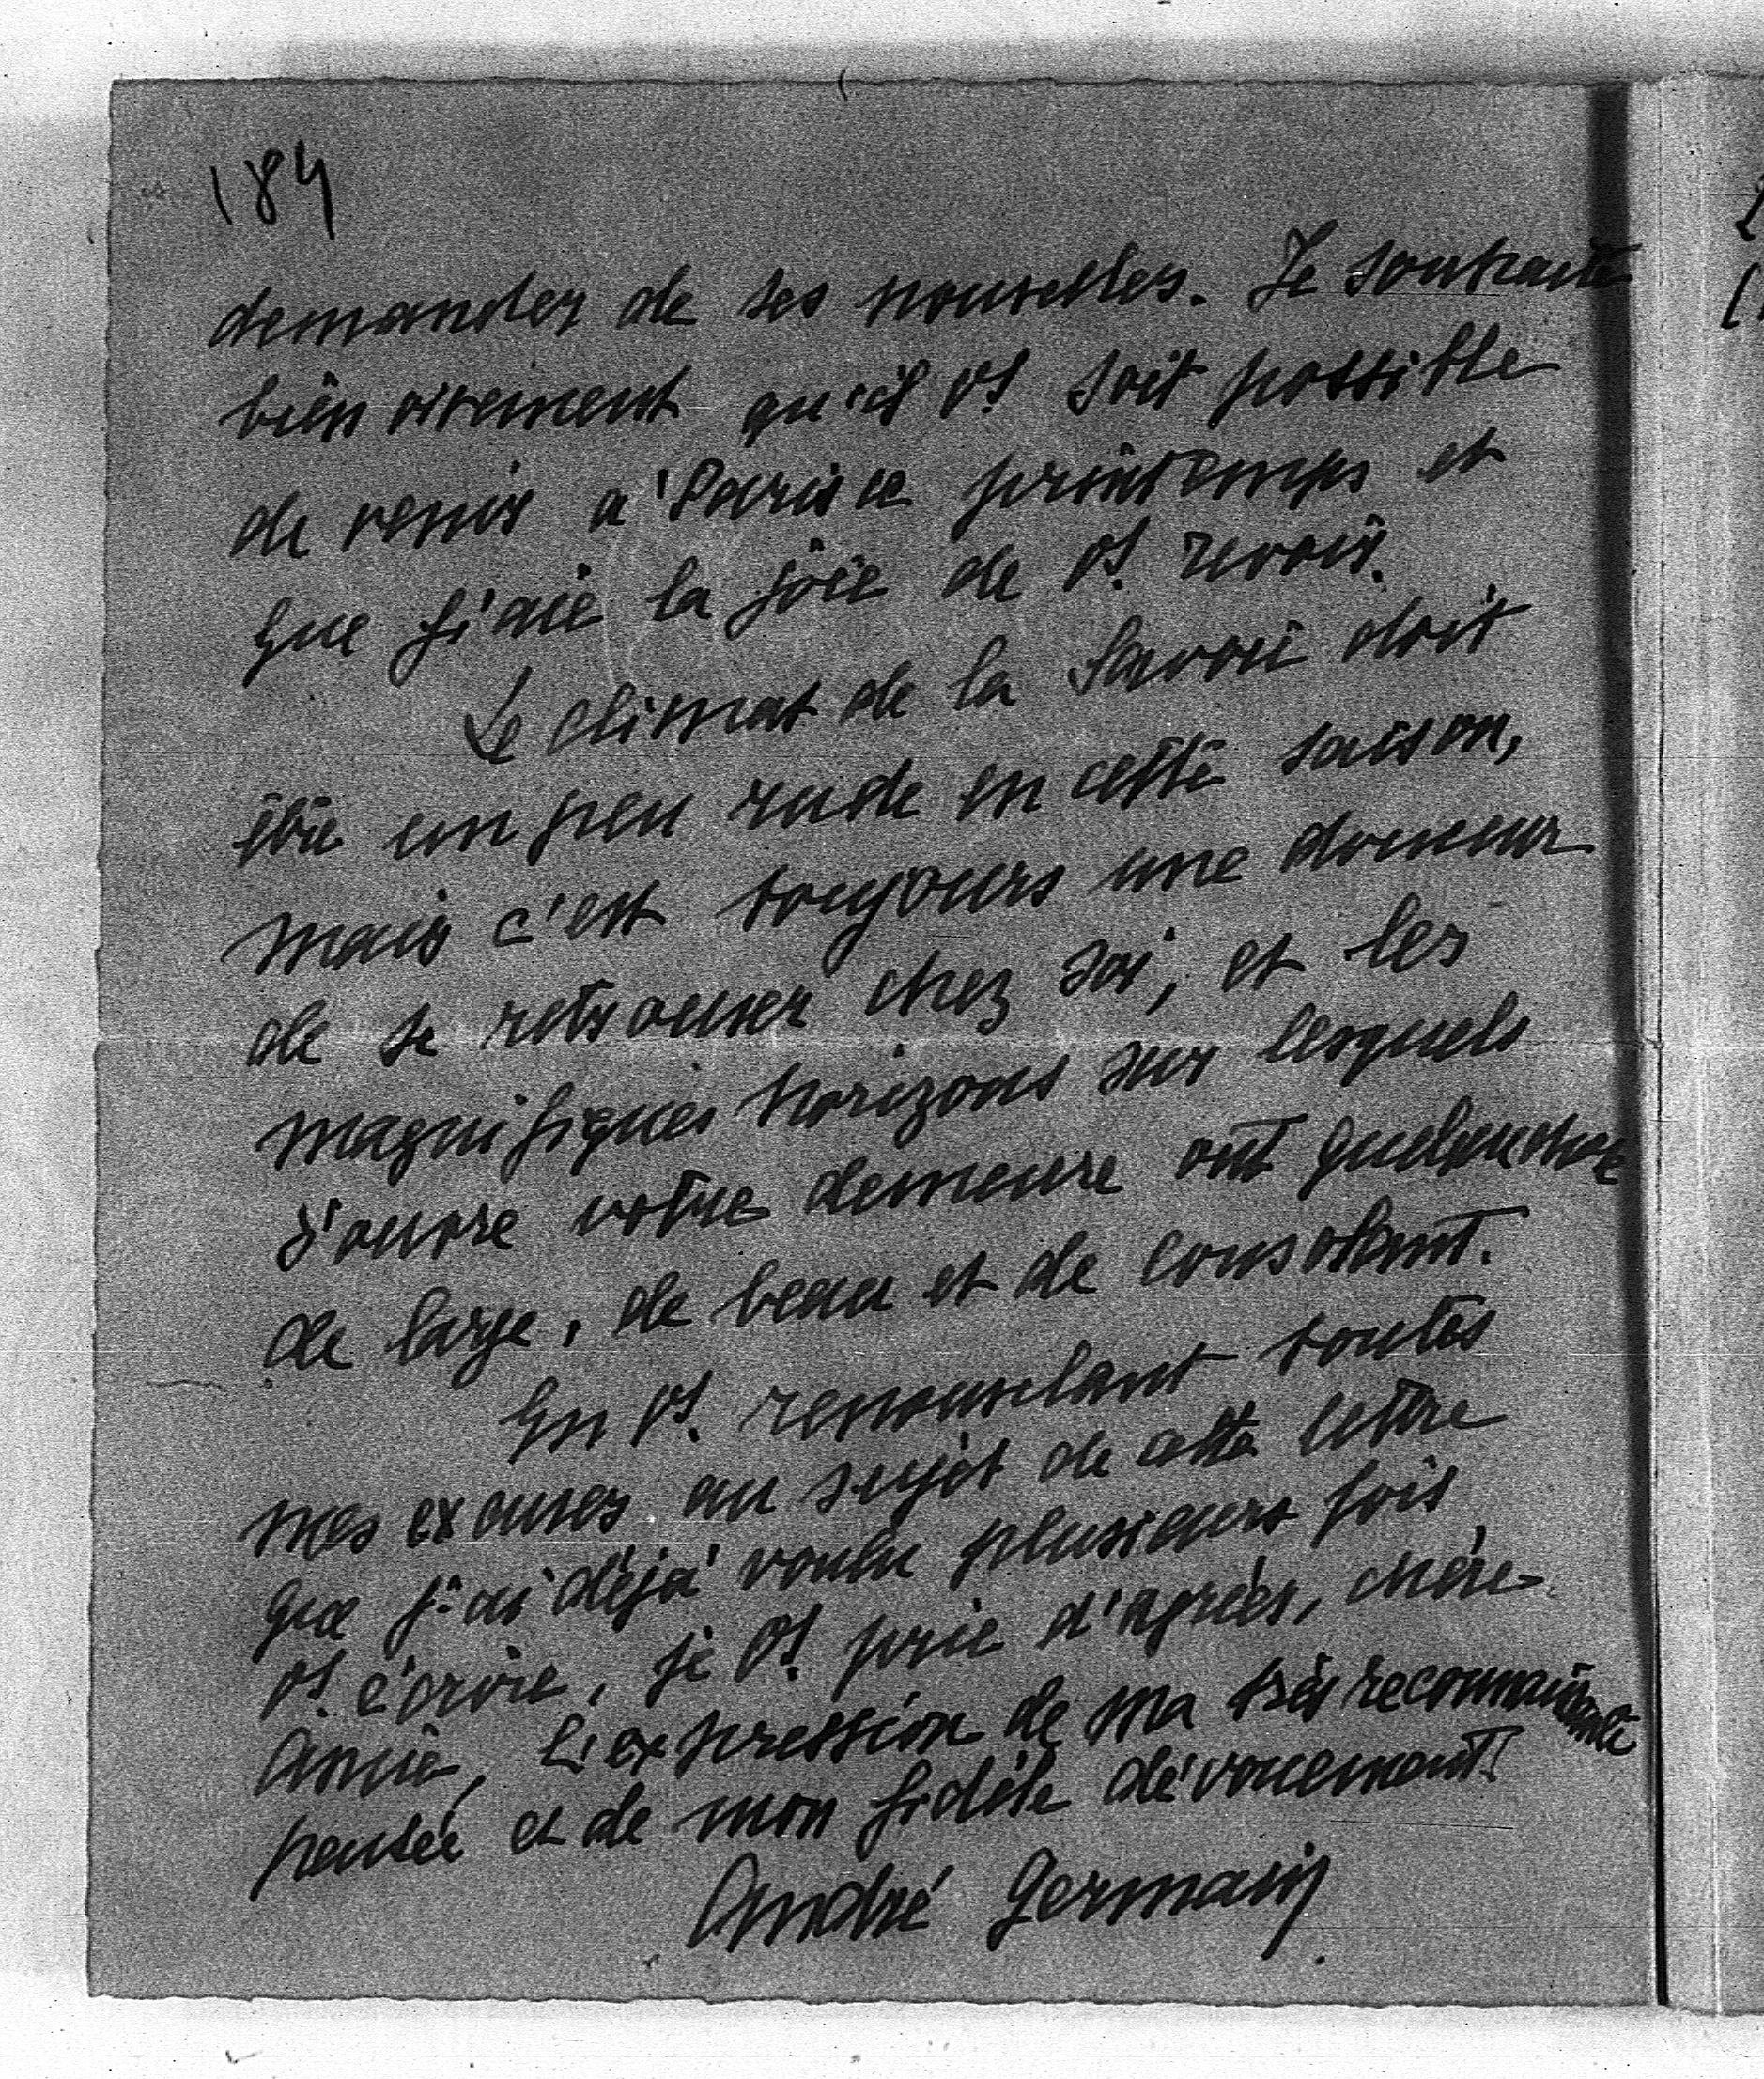 184
demander de ses nouvelles. Je souhaite
bien vivement qu'il vs. soit possible
de venir à Paris ce printemps et
que j'aie la joie de vs. revoir.
Le climat de la Savoie doit
être un peu rude en cette saison,
mais c'est toujours une douceur
de se retrouver chez soi, et les
magnifiques horizons sur lesquels
s'ouvre votre demeure ont quelque chose
de large, de beau et de consolant.
En vs. renouvelant toutes
mes excuses au sujet de cette lettre
que j'ai déjà voulu plusieurs fois
vs. écrire, je vs. prie d'agréer, chère
Amie, l'expression de ma très reconnaissante
pensée et de mon fidèle dévouement.
André Germain.